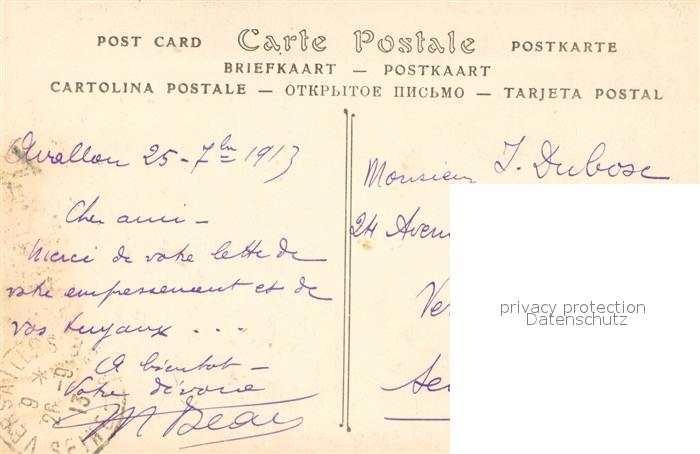 POST CARD Carte Postale POSTKARTE
BRIEFKAART — POSTKAART
CARTOLINA POSTALE — ОТКРЫТОЕ ПИСЬМО — TARJETA POSTAL
Avallon 25 - 7bre 1913
Cher ami -
Merci de votre lettre de
votre empressement et de
vos tuyaux ...
A bientot -
Votre dévoué
Monsieur J. Dubosc
24 Aven
Ver
Sei
privacy protection
Datenschutz
VERSAILLES
9 * 
26 - 9
13